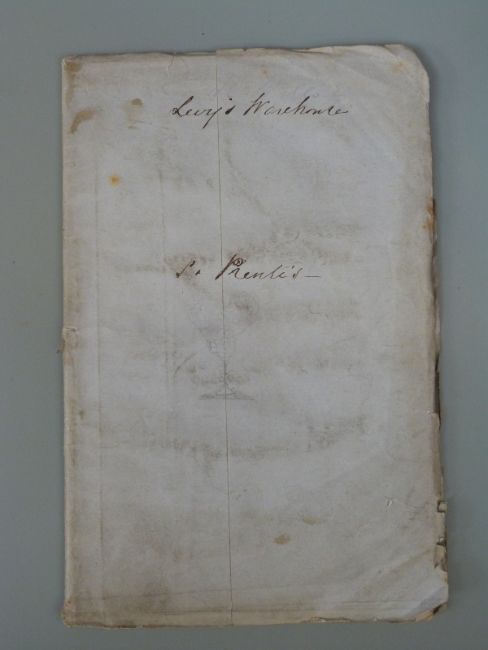 Levy's Warehouse
S. Prentis —